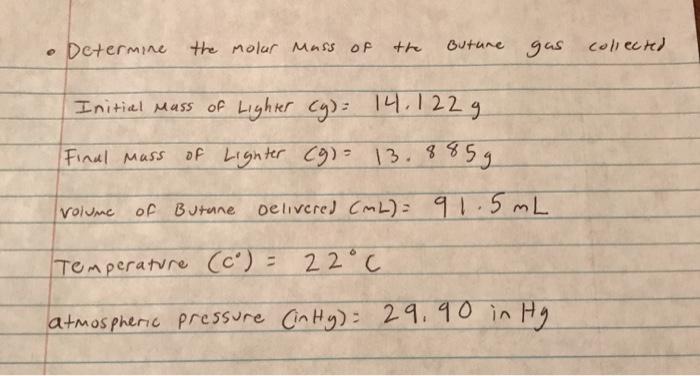 • Determine the Molar Mass of the Butane gas collected
Initial Mass of Lighter (g)= 14.122 g
Final Mass of Lighter (g)= 13.885 g
Volume of Butane Delivered (mL)= 91.5 mL
Temperature (C°) = 22°C
atmospheric pressure (inHg)= 29.90 in Hg